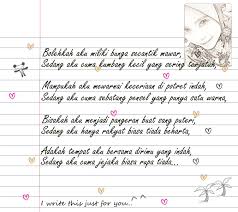 Bolehkah aku miliki bunga secantik mawar,
Sedang aku cuma kumbang kecil yang sering tersentuh,
Mampukah aku mewarnai keceriaan di potret indah,
Sedang aku cuma sebatang pensel yang punya satu warna,
Bisakah aku menjadi pangeran buat sang puteri,
Sedang aku hanya rakyat biasa tiada beharta,
Adakah tempat aku bersama dirimu yang indah,
Sedang aku cuma jejaka biasa rupa tiada...
I write this just for you..^^